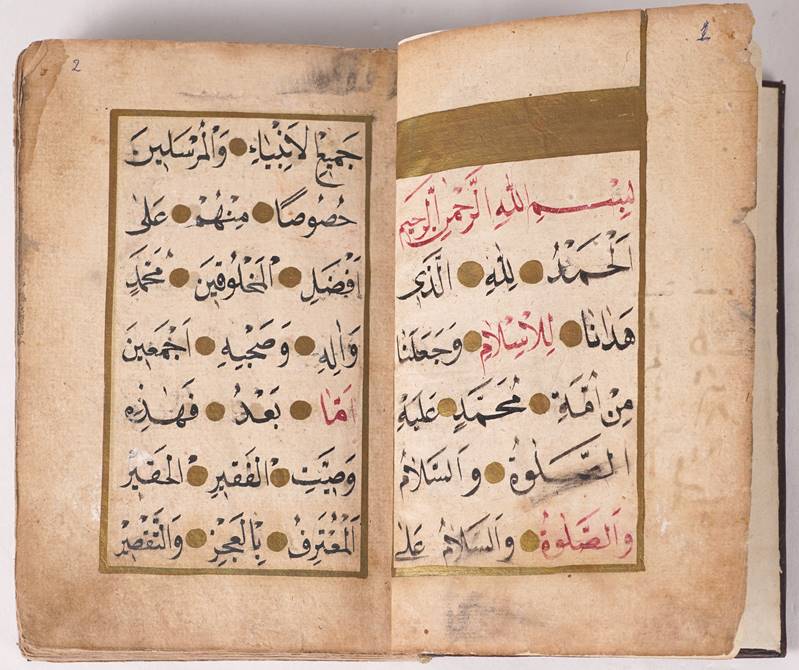 1
بِسْمِ اللّٰهِ الرَّحْمٰنِ الرَّحِيمِ
اَلْحَمْدُ لِلّٰهِ الَّذٖى
هَدٰانَا لِلْاِسْلَامِ وَجَعَلَنَا
مِنْ اُمَّةِ مُحَمَّدٍ عَلَيْهِ
الصَّلٰوةُ وَالسَّلَامُ
وَالصَّلٰوةُ وَالسَّلَامُ عَلٰى
2
جَمٖيعِ لاَنْبِيَاءِ وَالْمُرْسَلٖينَ
خُصُوصًا مِنْهُمْ عَلٰى
اَفْضَلِ الْمَخْلُوقٖينَ مُحَمَّدٍ
وَاٰلِهٖ وَصَحْبِهٖ اَجْمَعٖينَ
اَمَّا بَعْدُ فَهٰذِهٖ
وَصِيَّتِ الْفَقٖيرِ الْحَقٖيرِ
اَلْمُعْتَرِفُ بِالْعَجْزِ وَالتَّقْصٖيرِ